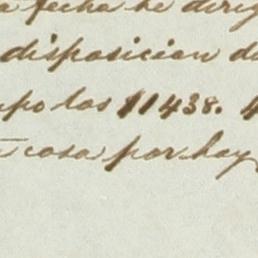 a fecha he dirig
disposicion d
po los $11438.
cosa por hoy